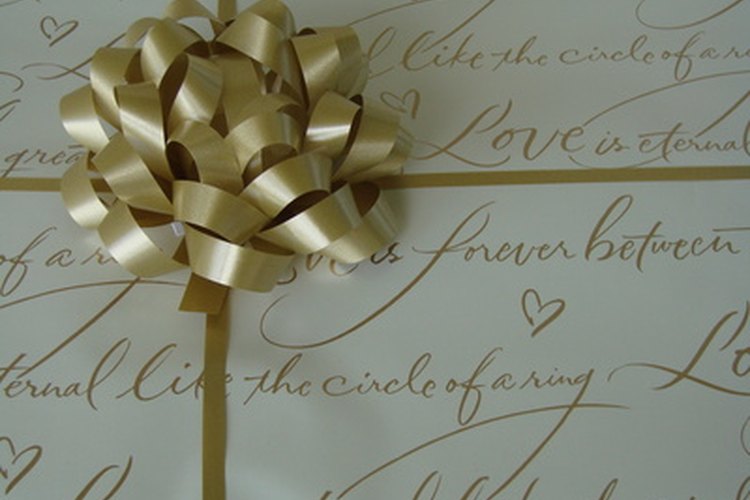 like the circle of a
Love is eternal
is forever between
of a
like the circle of a ring